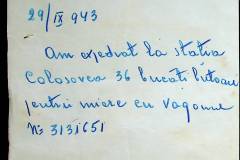 29/IX 943
Am expediat la statia
Colosovca 36 bucăți butoaie
pentru miere cu vagonul
No 3131651